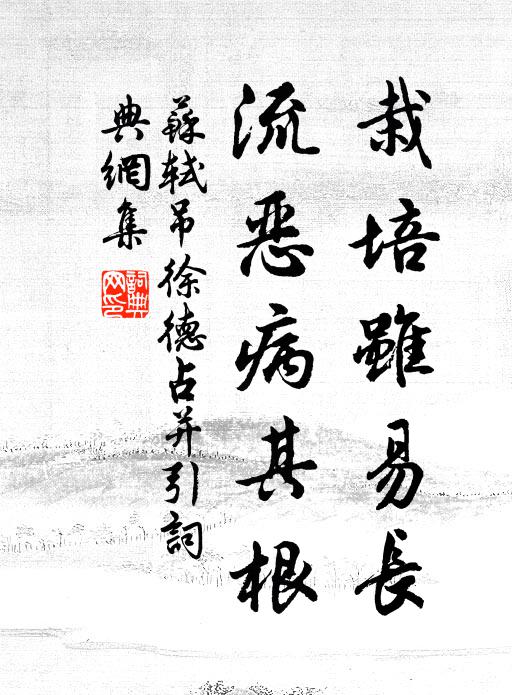 栽培雖易長
流惡病其根
蘇軾吊徐德占并引詞
典網集
詞典
网印